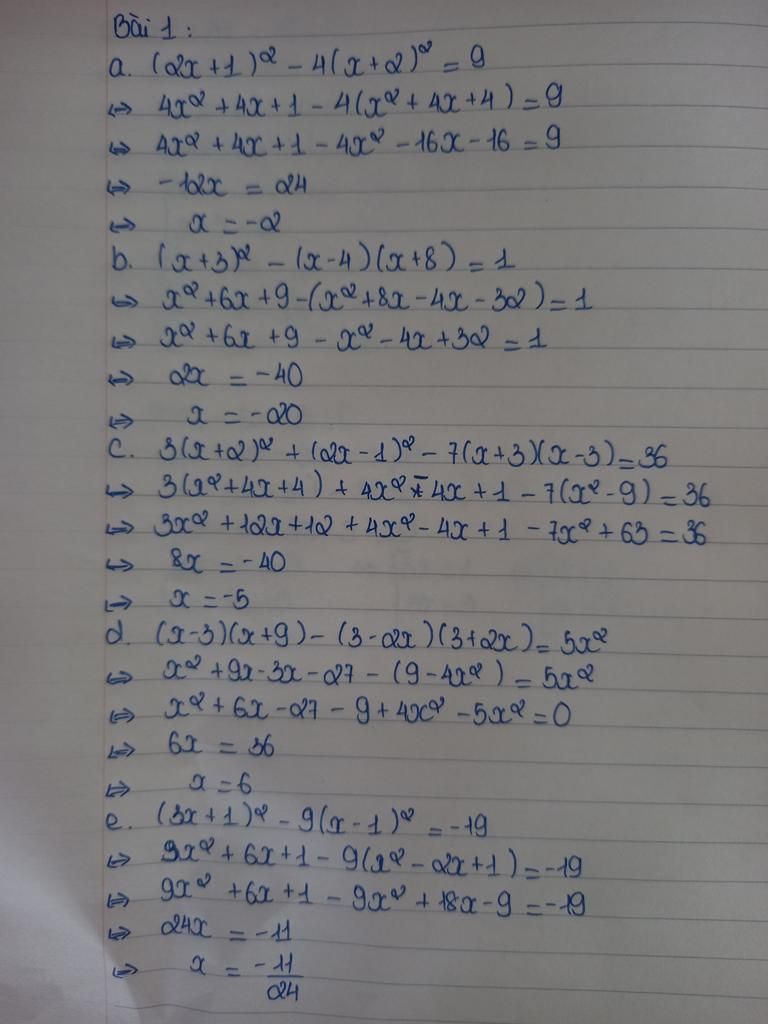 Bài 1:
a. (2x+1)² - 4(x+2)² = 9
⇔ 4x² + 4x + 1 - 4(x² + 4x + 4) = 9
⇔ 4x² + 4x + 1 - 4x² - 16x - 16 = 9
⇔ -12x = 24
⇔ x = -2
b. (x+3)² - (x-4)(x+8) = 1
⇔ x² + 6x + 9 - (x² + 8x - 4x - 32) = 1
⇔ x² + 6x + 9 - x² - 4x + 32 = 1
⇔ 2x = -40
⇔ x = -20
c. 3(x+2)² + (2x-1)² - 7(x+3)(x-3) = 36
⇔ 3(x² + 4x + 4) + 4x² - 4x + 1 - 7(x² - 9) = 36
⇔ 3x² + 12x + 12 + 4x² - 4x + 1 - 7x² + 63 = 36
⇔ 8x = -40
⇔ x = -5
d. (x-3)(x+9) - (3-2x)(3+2x) = 5x²
⇔ x² + 9x - 3x - 27 - (9 - 4x²) = 5x²
⇔ x² + 6x - 27 - 9 + 4x² - 5x² = 0
⇔ 6x = 36
⇔ x = 6
e. (3x+1)² - 9(x-1)² = -19
⇔ 9x² + 6x + 1 - 9(x² - 2x + 1) = -19
⇔ 9x² + 6x + 1 - 9x² + 18x - 9 = -19
⇔ 24x = -11
⇔ x = -11/24